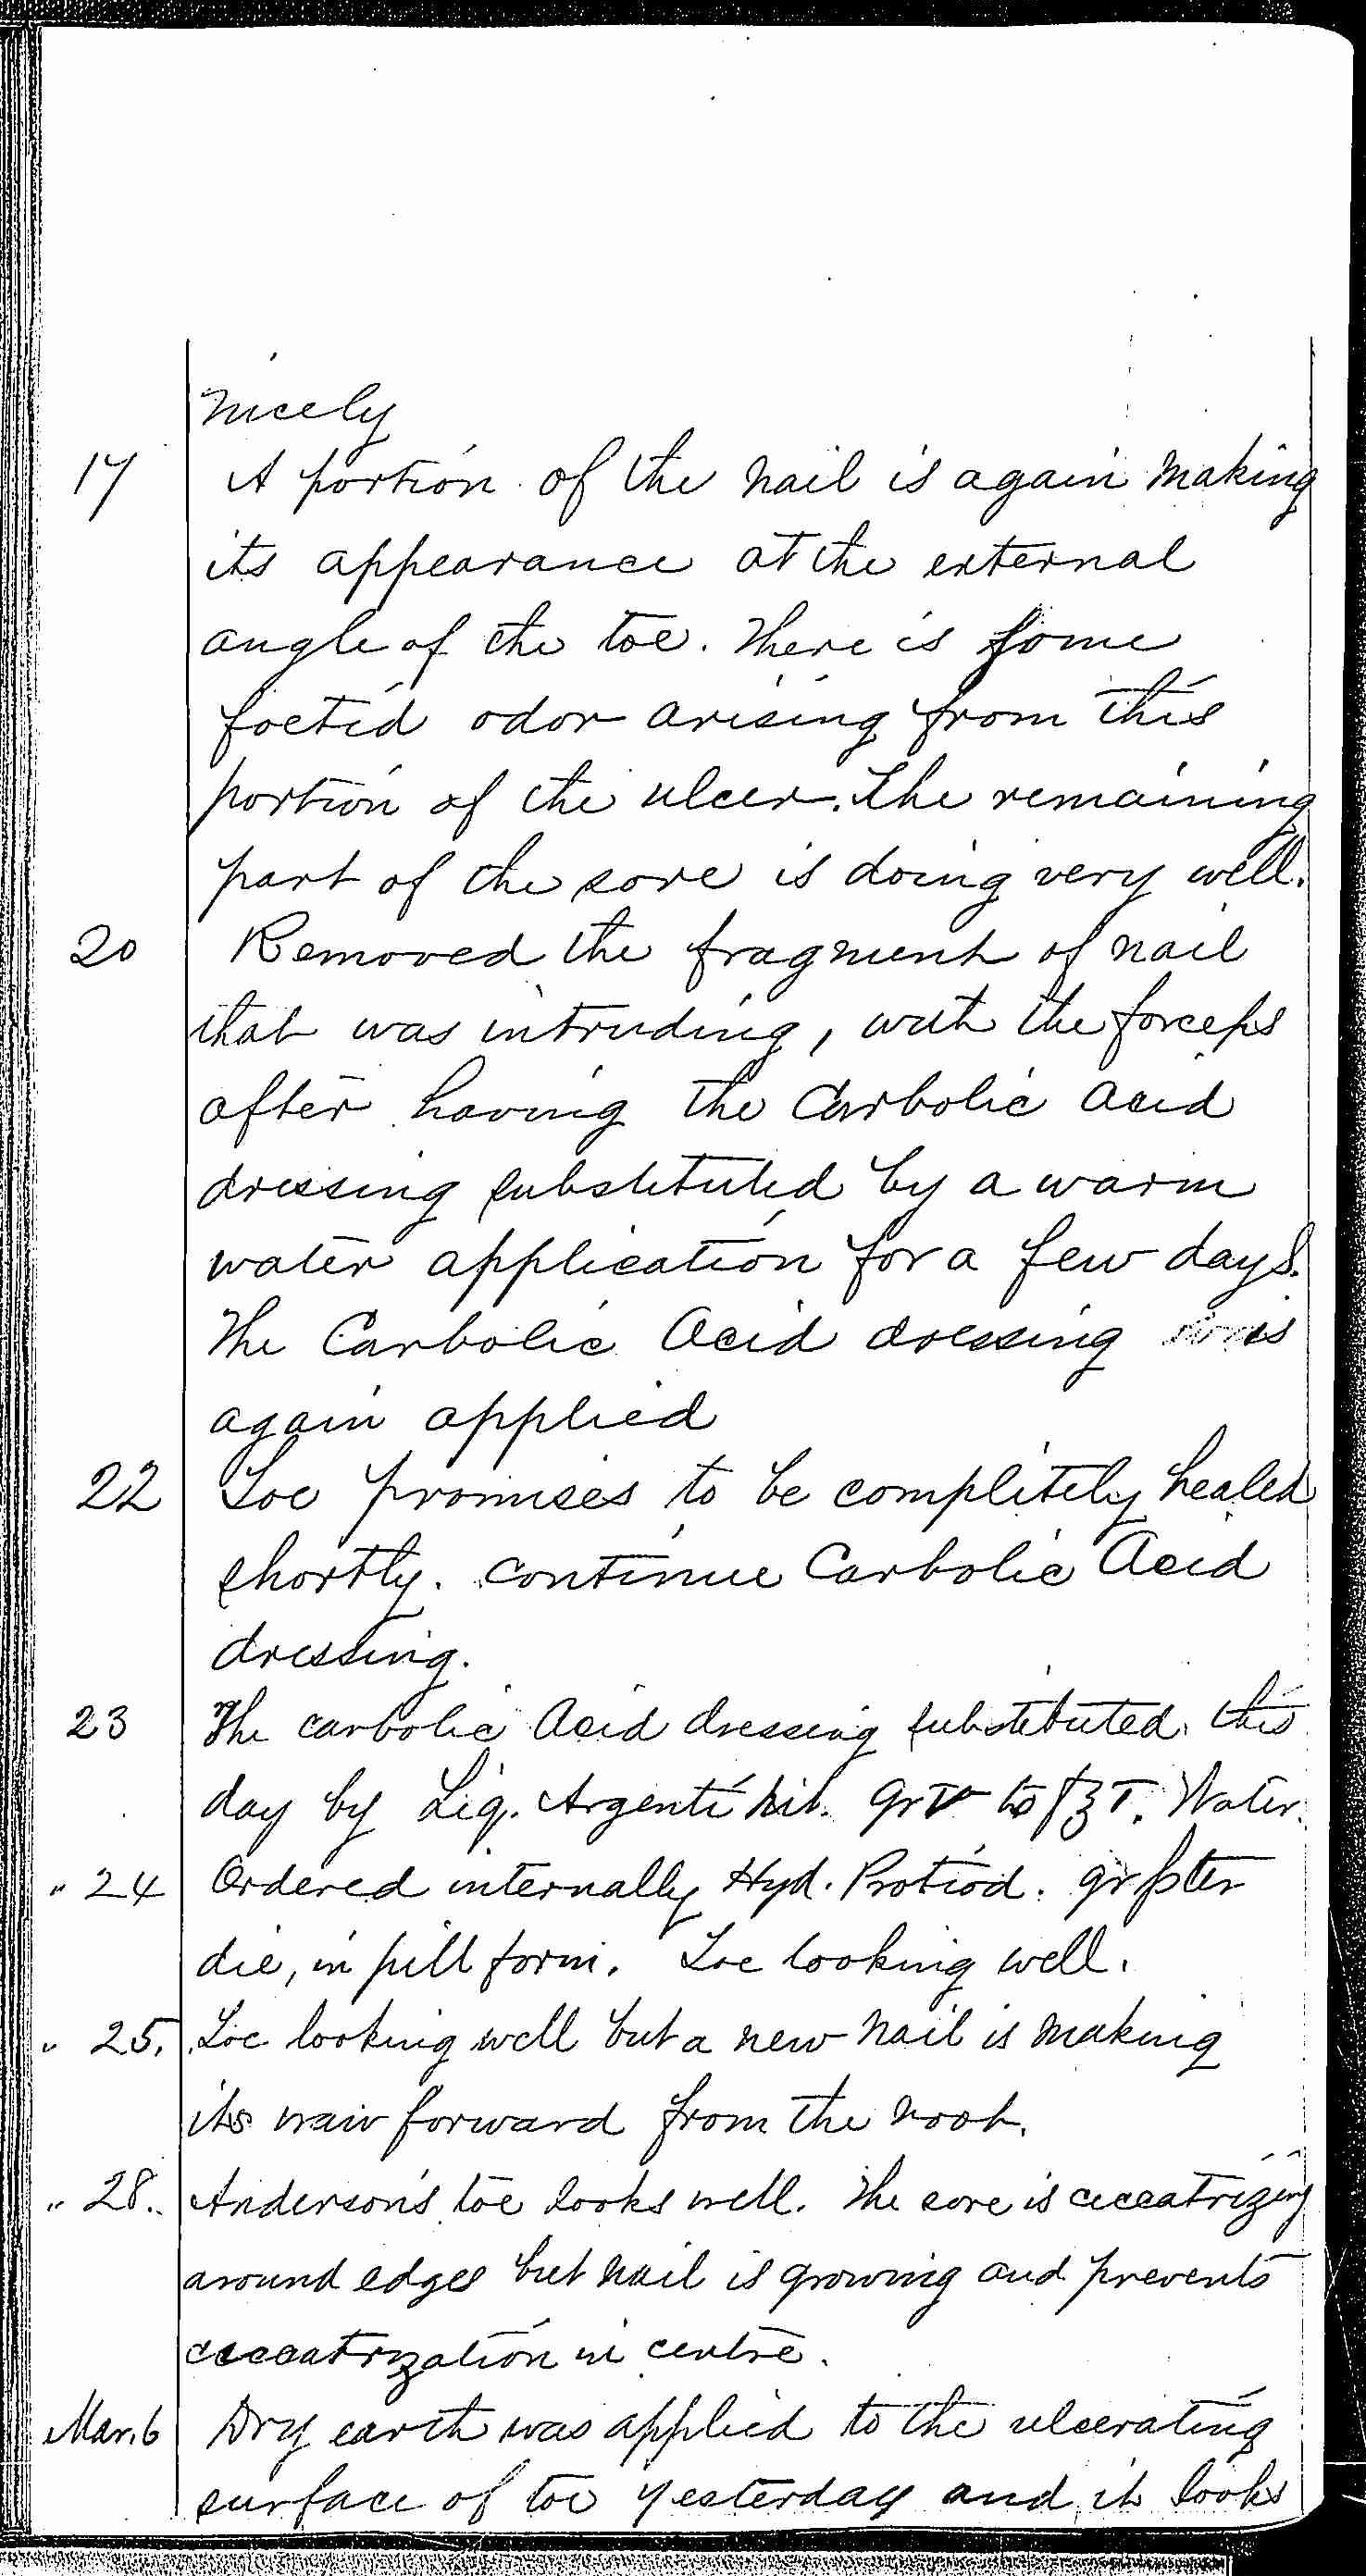 nicely
17 A portion of the nail is again making
its appearance at the external
angle of the toe. There is some
foetid odor arising from this
portion of the ulcer. The remaining
part of the sore is doing very well.
20 Removed the fragment of nail
that was intruding, with the forceps
after having the Carbolic Acid
dressing substituted by a warm
water application for a few days.
The Carbolic Acid dressing was
again applied
22 Toe promises to be completely healed
shortly. continue Carbolic Acid
dressing.
23 The carbolic Acid dressing substituted this
day by Liq. Argenti Nit. gr v to f℥ т. Water.
" 24 Ordered internally Hyd. Protiod. gr ter
die, in pill form. Toe looking well.
" 25. Toe looking well but a new nail is making
its way forward from the root.
" 28. Anderson's toe looks well. The sore is ciccatrizing
around edges but nail is growing and prevents
ciccatrization in centre.
Mar. 6 Dry earth was applied to the ulcerating
surface of toe yesterday and it looks